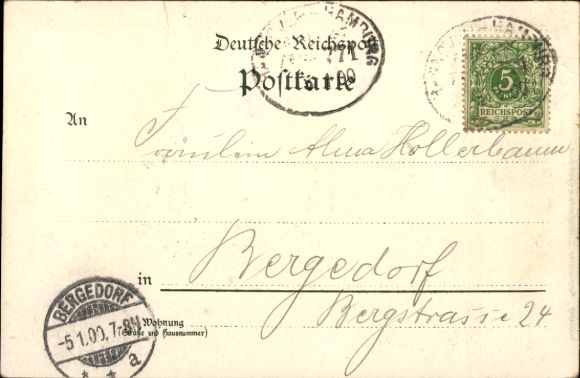 Deutsche Reichspost
Postkarte
HAMBURG
771
5
REICHSPOST
An
Fräulein Alma Hollerbaum
in
Bergedorf
Wohnung
(Straße und Hausnummer)
Bergstrasse 24
BERGEDORF
-5 1.00. 7-8N
* * a